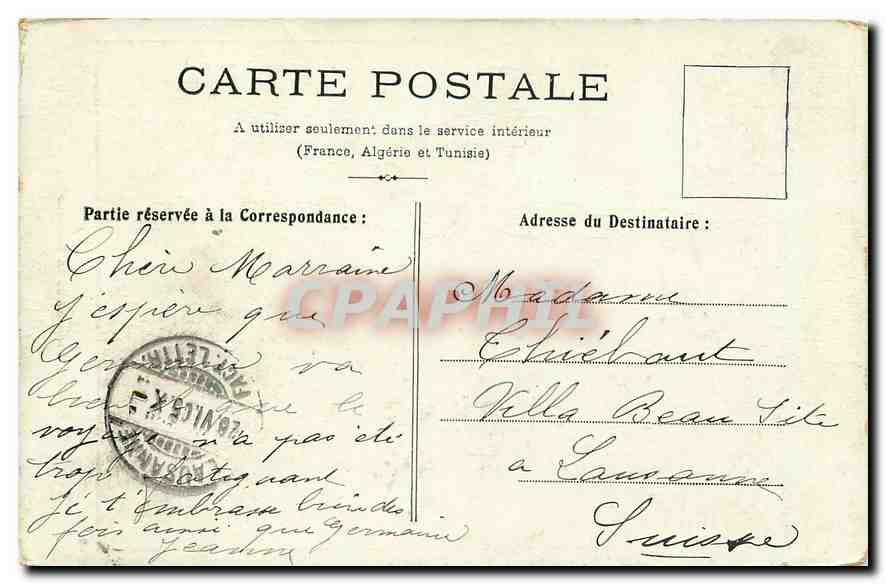 CARTE POSTALE
A utiliser seulement dans le service intérieur
(France, Algérie et Tunisie)
Partie réservée à la Correspondance :
Chère Marraine
j'espère que
Germaine va
bien que le
voyage n'a pas été
trop fatiguant
je t'embrasse bien des
fois ainsi que Germaine
Jeanne
Adresse du Destinataire :
Madame
Thiébaut
Villa Beau Site
a Lausanne
Suisse
CPAPHIL
LAUSANNE
20.VI.05.X
FAC. LETTR.